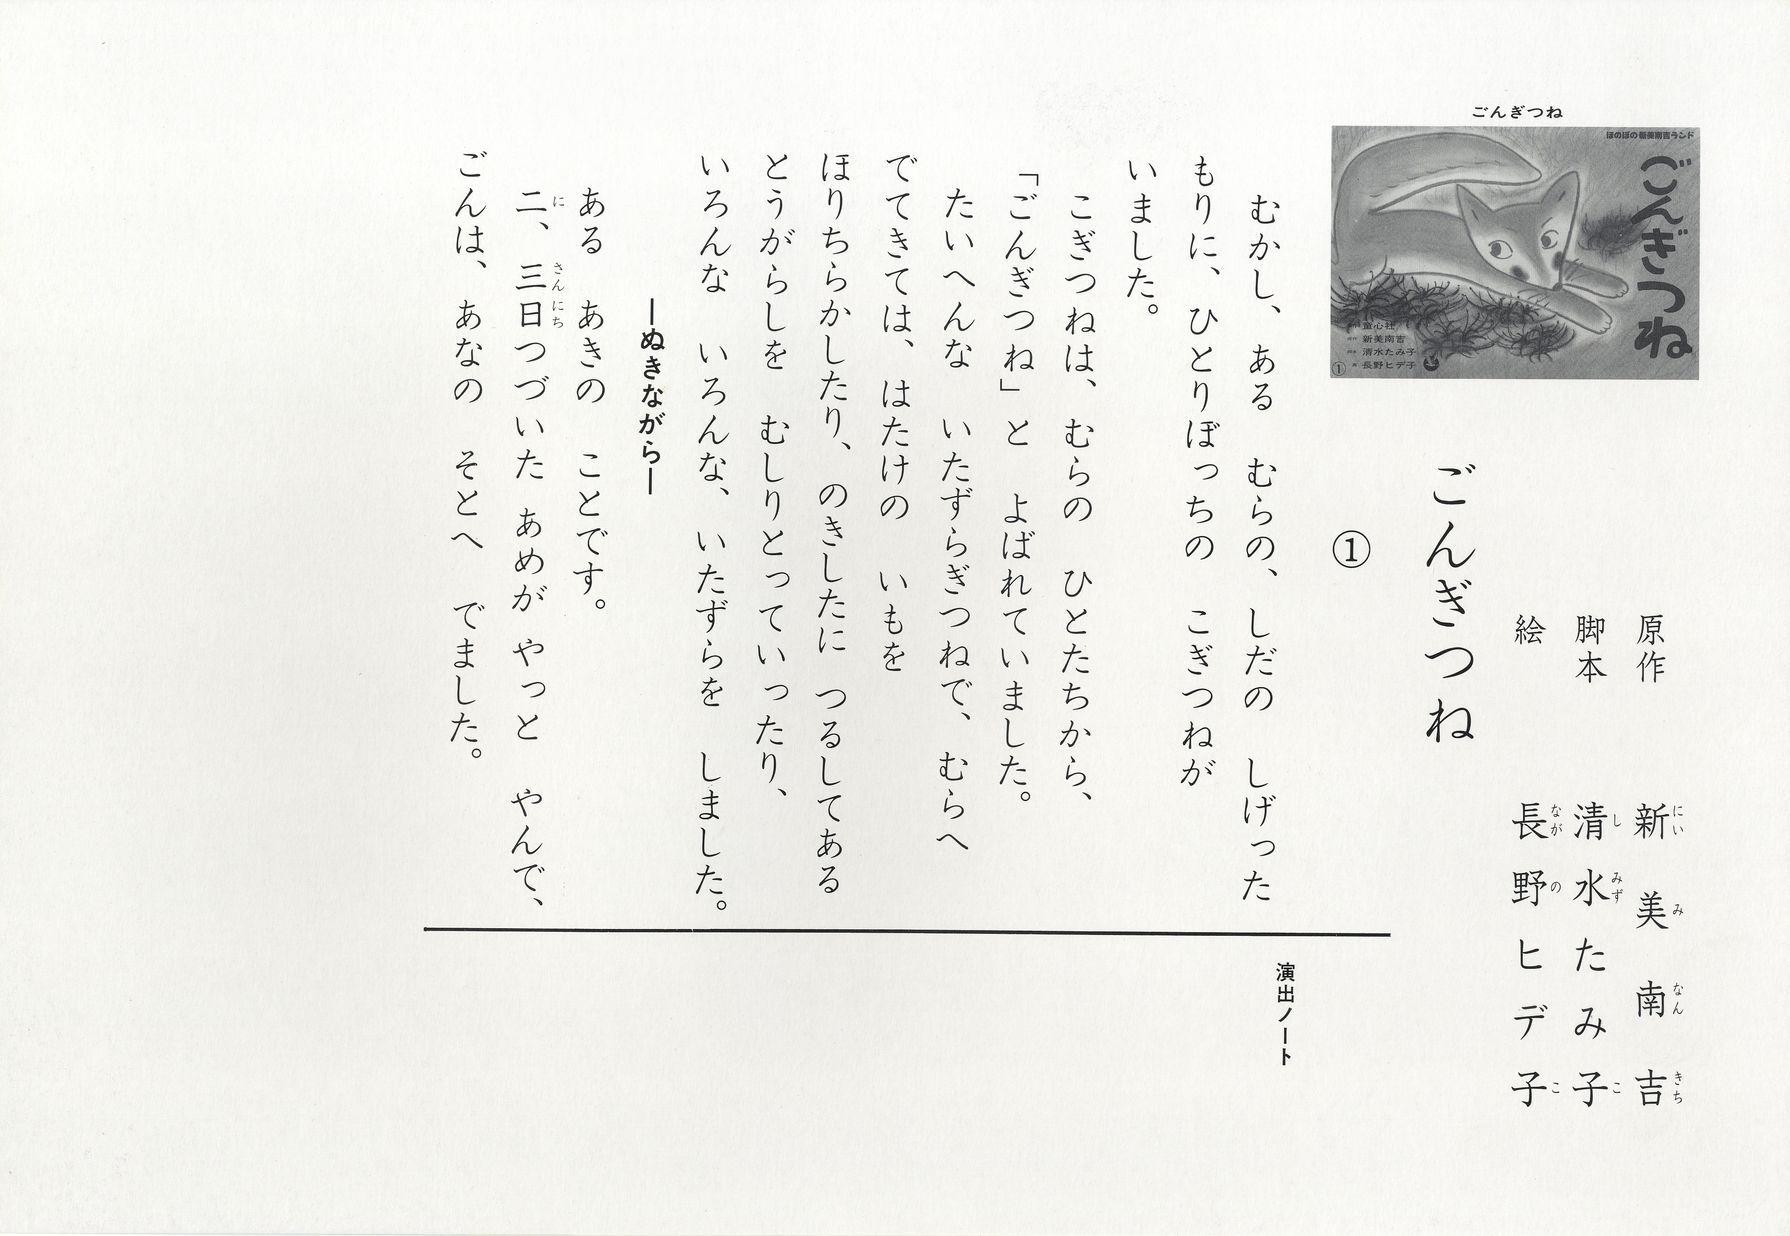 ごんぎつね
ほのぼの新美南吉ランド
ごんぎつね
童心社
新美南吉
清水たみ子
長野ヒデ子
①
原作 新美南吉
にい み なん きち
脚本 清水たみ子
し みず こ
絵 長野ヒデ子
なが の こ
ごんぎつね
①
むかし、ある むらの、しだの しげった
もりに、ひとりぼっちの こぎつねが
いました。
こぎつねは、むらの ひとたちから、
「ごんぎつね」と よばれていました。
たいへんな いたずらぎつねで、むらへ
でてきては、はたけの いもを
ほりちらかしたり、のきしたに つるしてある
とうがらしを むしりとっていったり、
いろんな いろんな、いたずらを しました。
―ぬきながら―
ある あきの ことです。
二、三日つづいた あめが やっと やんで、
に さんにち
ごんは、あなの そとへ でました。
演出ノート